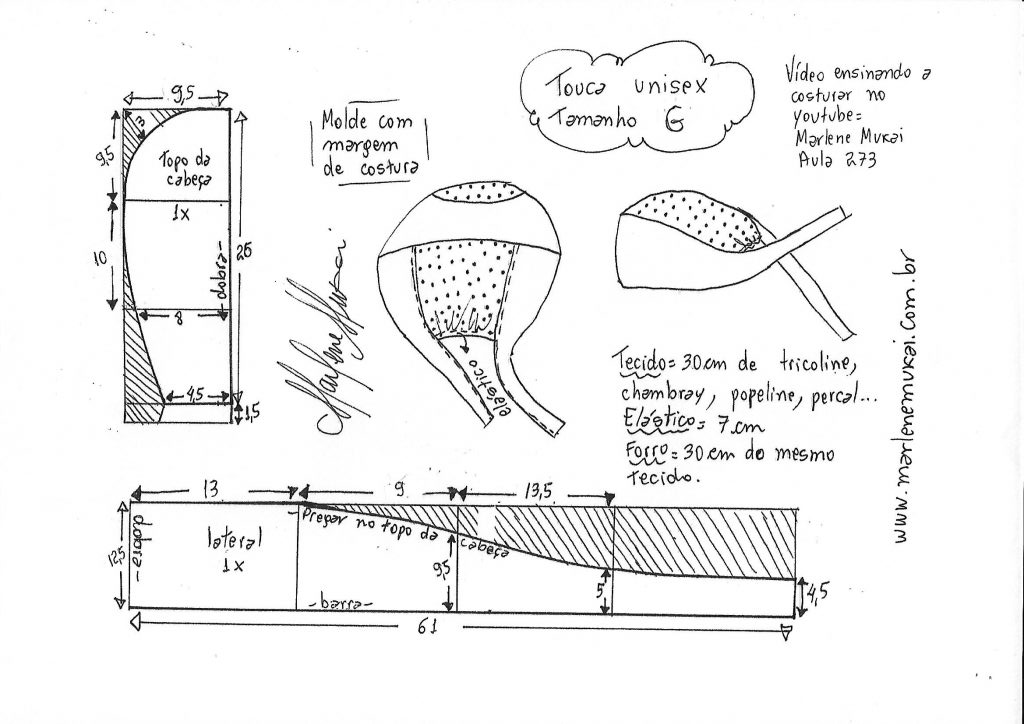 Touca unisex
Tamanho G
Vídeo ensinando a
costurar no
youtube=
Marlene Mukai
Aula 273
Molde com
margem
de costura
9,5
3
9,5
Topo da
cabeça
1x
10
dobra
26
8
4,5
1,5
Marlene Mukai
elástico
Tecido= 30cm de tricoline,
chambray, popeline, percal...
Elástico= 7cm
Forro= 30cm do mesmo
tecido.
www.marlenemukai.com.br
13
9
13,5
Pregar no topo da cabeça
12,5
dobra
lateral
1x
9,5
5
4,5
-barra-
61